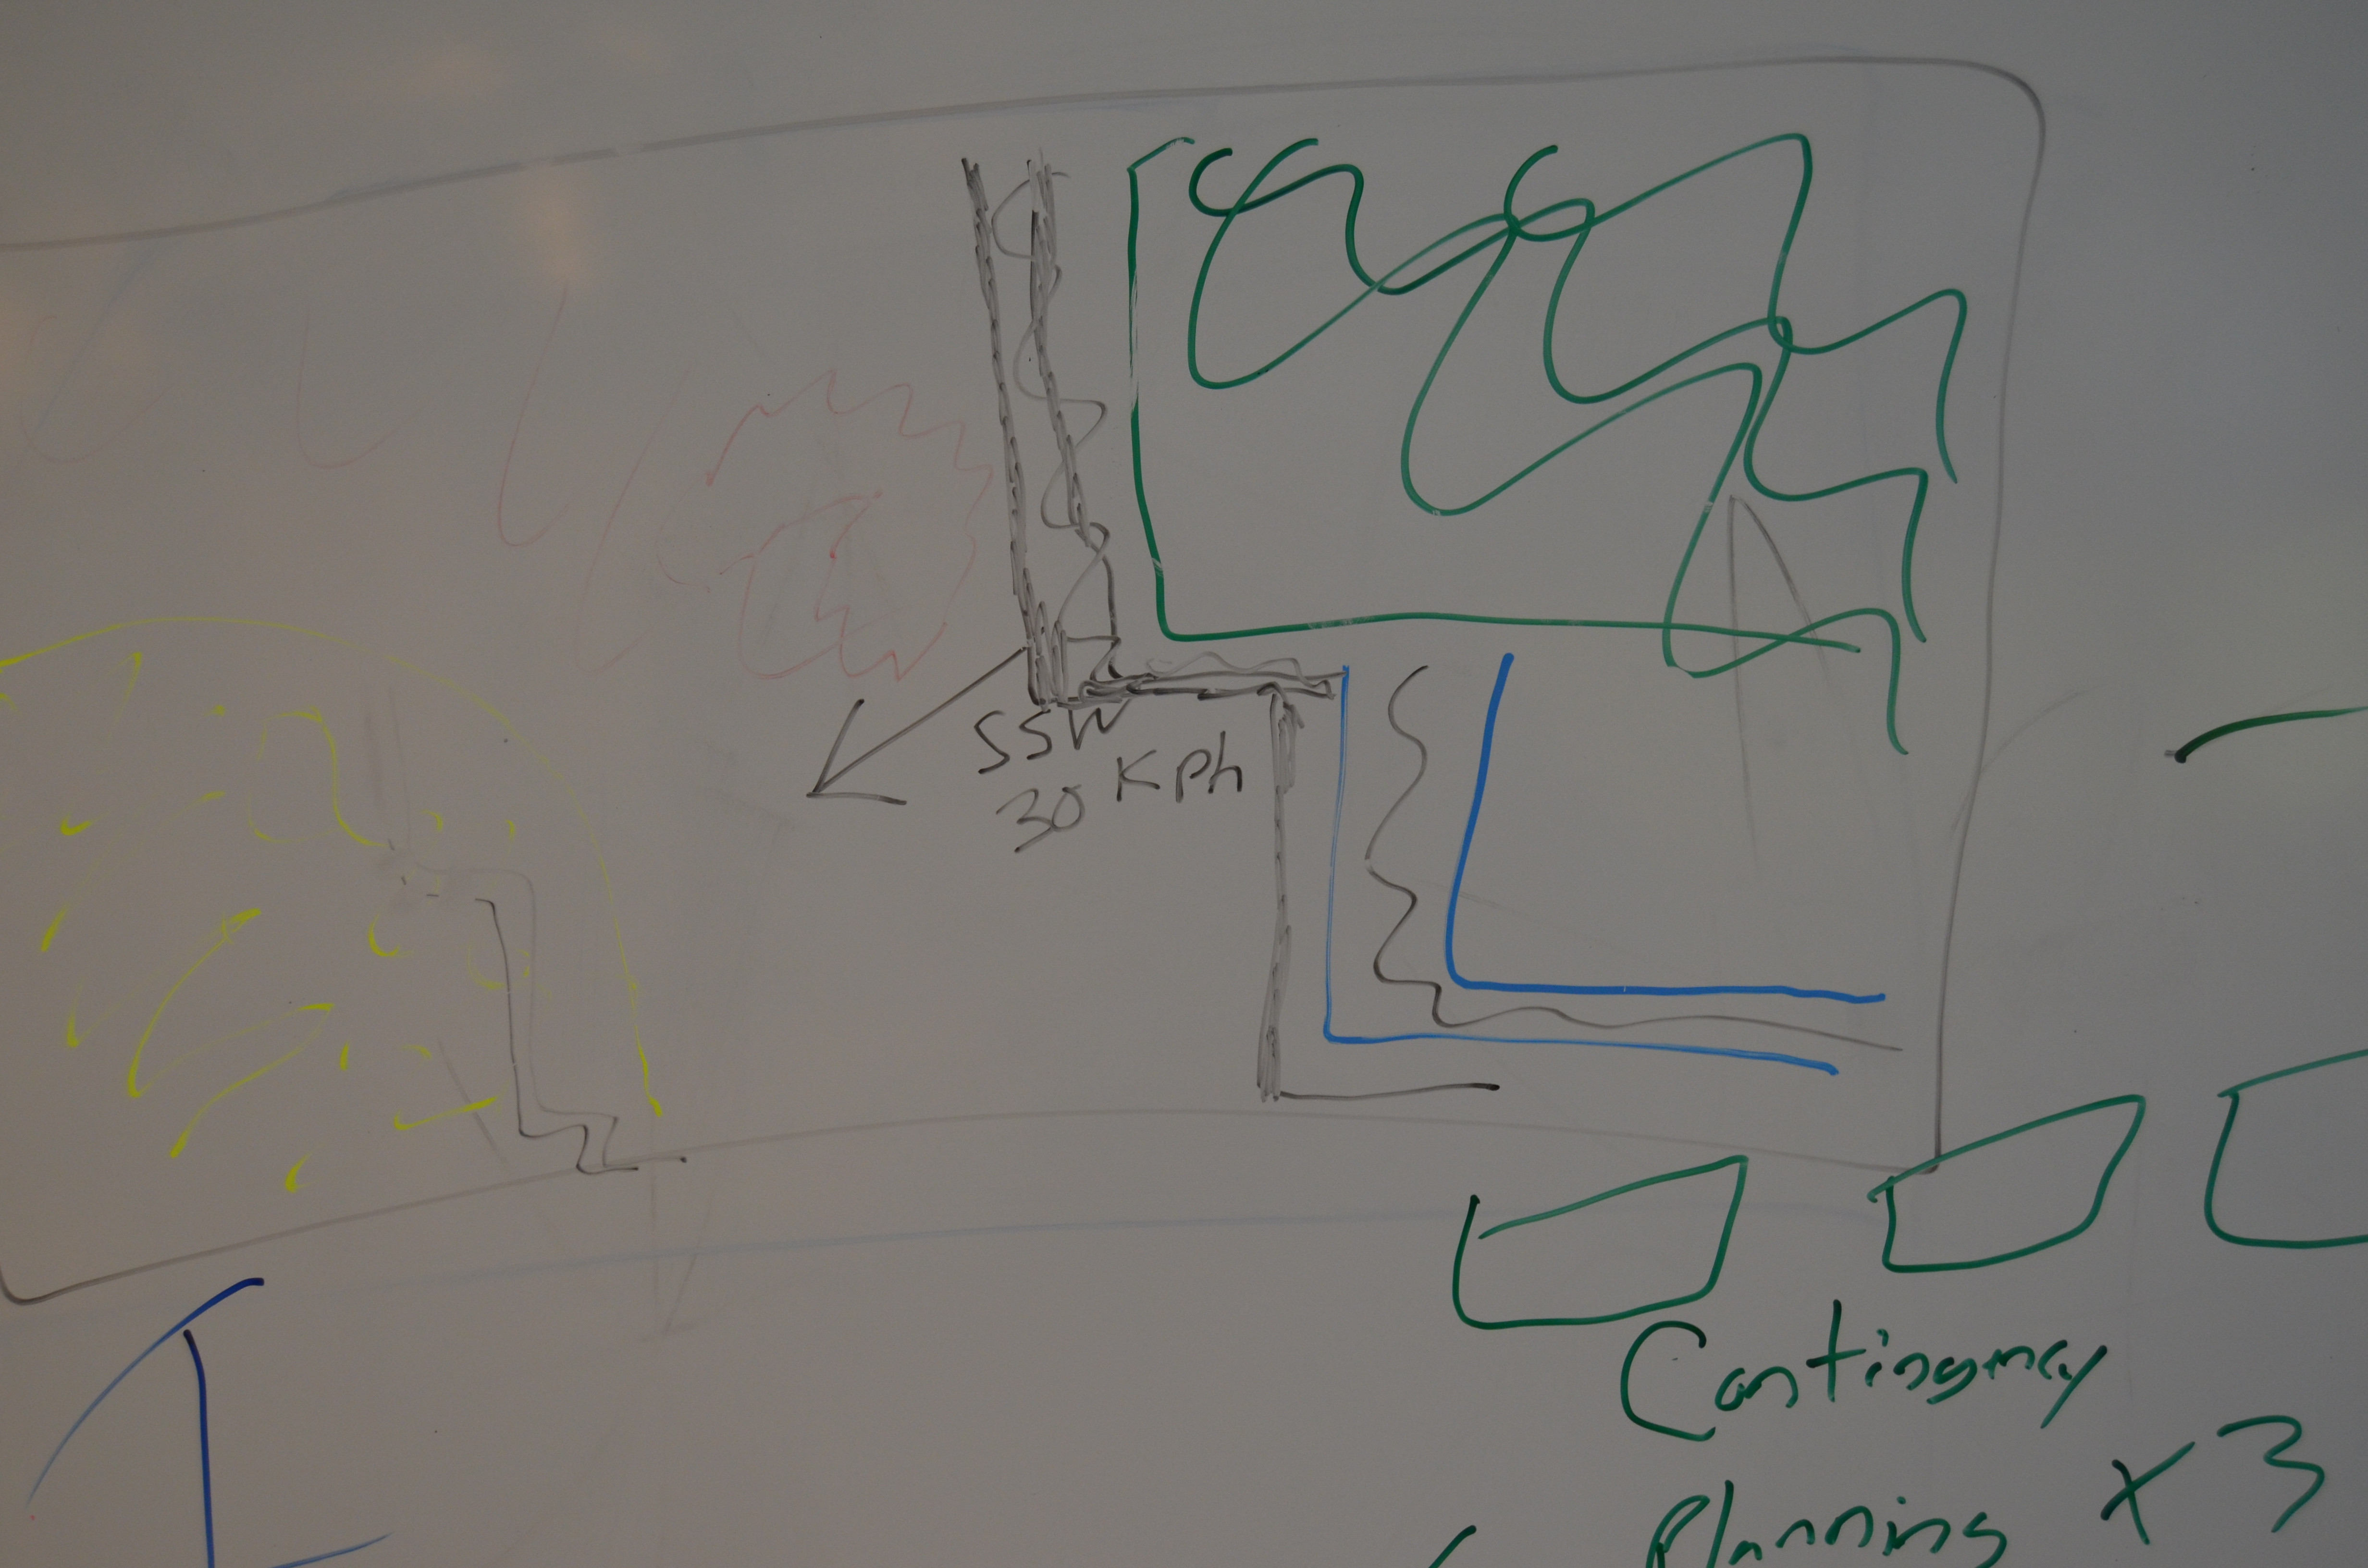 SSW
30 KPh
Contingency
Planning x 3